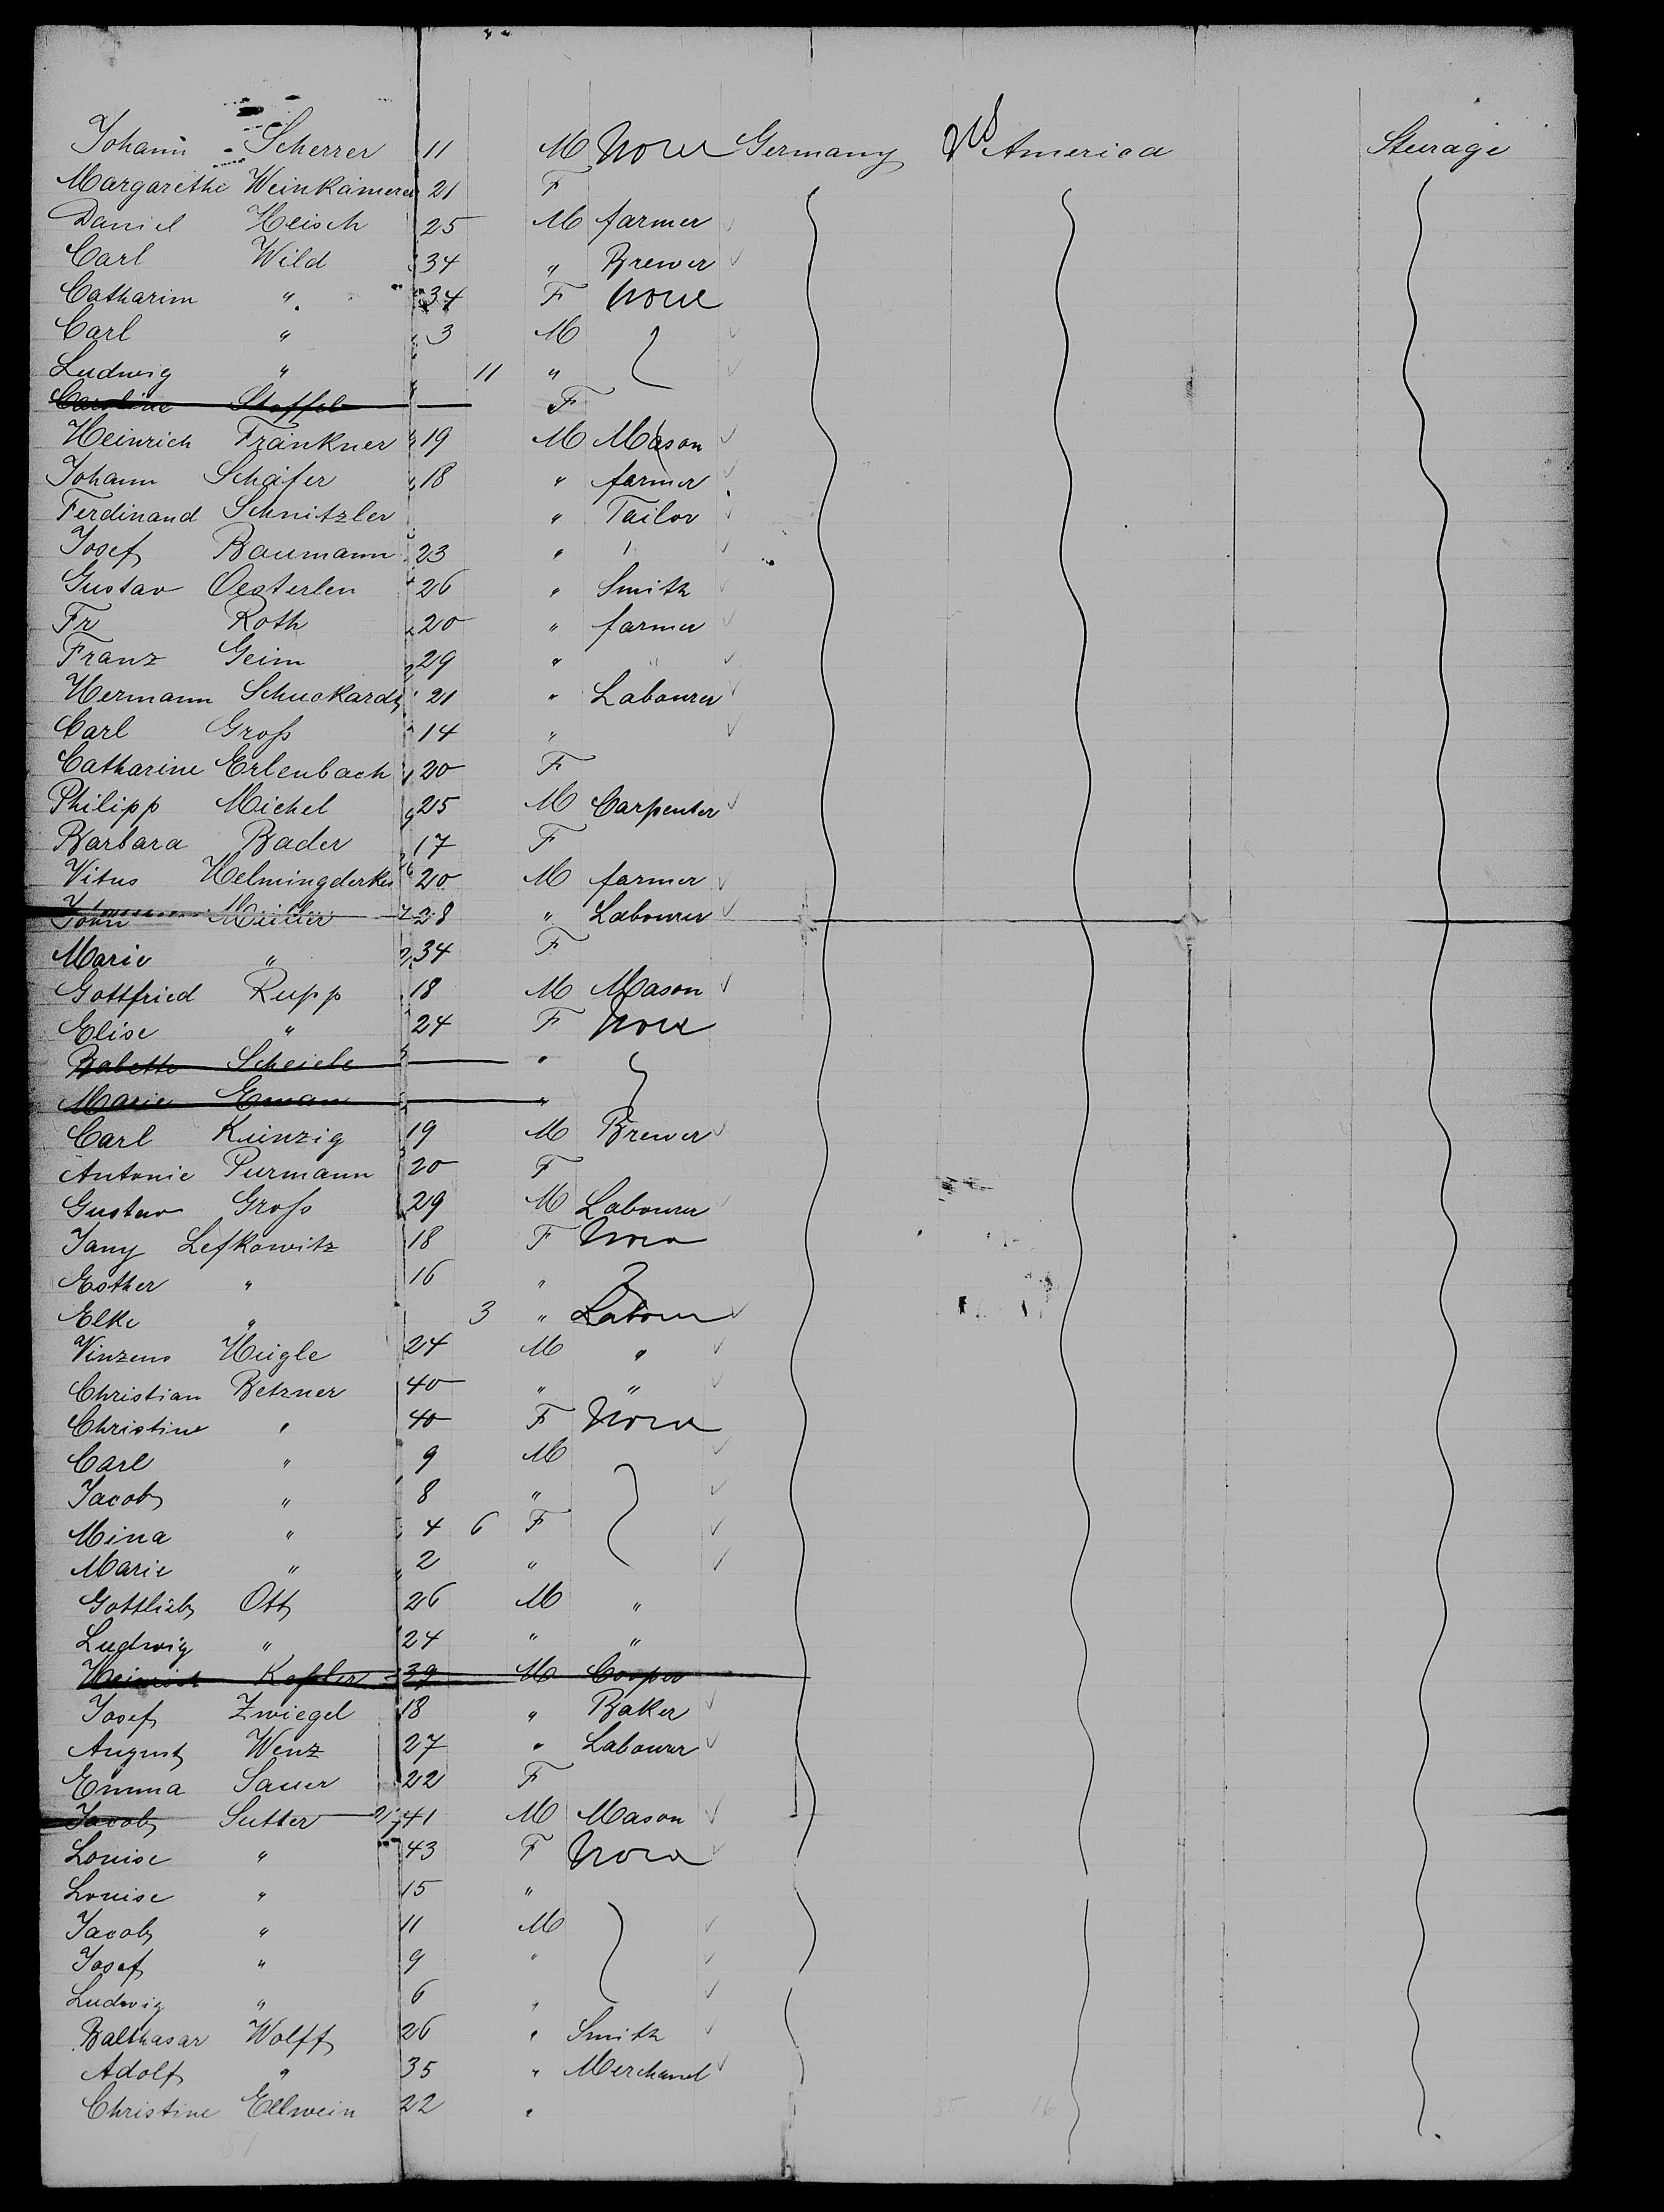 Johann Scherrer 11 M None Germany US America Steurage
Margarethe Weinkämerer 21 F
Daniel Heisch 25 M farmer
Carl Wild 34 " Brewer
Catharim " 34 F None
Carl " 3 M
Ludwig " 11 "
Caroline Stoffel F
Heinrich Fränkner 19 M Mason
Johann Schäfer 18 " farmer
Ferdinand Schnitzler " Tailor
Josef Baumann 23 " "
Gustav Oesterlen 26 " Smith
Fr Roth 20 " farmer
Franz Geim 29 " "
Hermann Schuckardt 21 " Labourer
Carl Groß 14 "
Catharine Erlenbach 20 F
Philipp Michel 25 M Carpenter
Barbara Bader 17 F
Vitus 20 M farmer
John Müller 28 " Labourer
Marie " 34 F
Gottfried Rupp 18 M Mason
Elise " 24 F None
Babette Scheiele "
Marie "
Carl Künzig 19 M Brewer
Antonie Purmann 20 F
Gustav Groß 29 M Labourer
Jany Lefkowitz 18 F None
Esther " 16 "
Elke " 3 " Labour
Vinzens Heigle 24 M "
Christian Betzner 40 " "
Christine " 40 F None
Carl " 9 M
Jacob " 8 "
Mina " 4 6 F
Marie " 2 "
Gottlieb Ott 26 M "
Ludwig " 24 " "
Heinrich Keßler 39 M Cooper
Josef Zwiegel 18 " Baker
August Wenz 27 " Labourer
Emma Sauer 22 F
Jacob Sutter 41 M Mason
Louise " 43 F None
Louise " 15 "
Jacob " 11 M
Josef " 9 "
Ludwig " 6 "
Balthasar Wolff 26 " Smith
Adolf " 35 " Merchand
Christine Ellwein 22 "